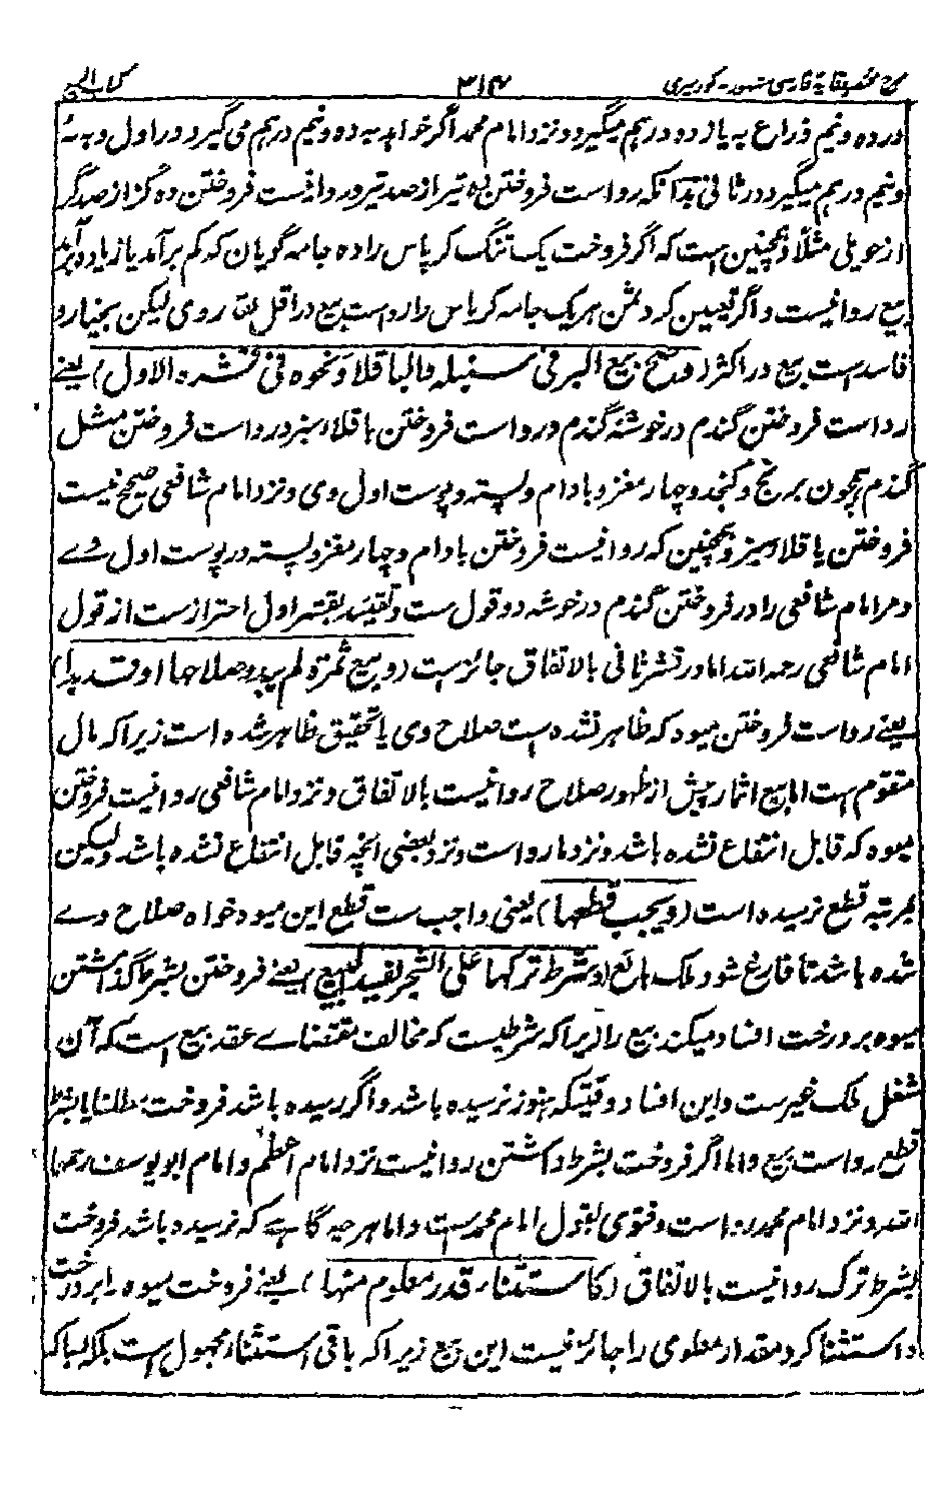 شرح مختصر وقایة فارسی مشهور بکور میری ۳۱۴ کتاب البیع
در ده و نیم ذراع به یازده درهم میگیرد و نزد امام محمد اگر خواهد به ده و نیم درهم می گیرد در اول و به نه
و نیم درهم میگیرد در ثانی بدانکه رواست فروختن ده تیر از صد تیر و روا نیست فروختن ده گز از صد گز
از حویلی مثلاً و همچنین است که اگر فروخت یک تنگ کرپاس را ده جامه گویان که کم برآمد یا زیاده برآمد
بیع روا نیست و اگر تعیین کرد ثمن هر یک جامه کرباس را رواست بیع در اقل بقدر وی لیکن بخیار و
فاسد است بیع در اکثر (و صح بیع البر فی سنبله والباقلاء و نحوه فی قشره الاول) یعنے
رواست فروختن گندم در خوشهٔ گندم و رواست فروختن باقلاء سبز و رواست فروختن مثل
گندم همچون برنج و کنجد و چار مغز و بادام و پسته و پوست اول وی و نزد امام شافعی صحیح نیست
فروختن باقلاء سبز و همچنین که روا نیست فروختن بادام و چار مغز و پسته در پوست اول وے
و مر امام شافعی را در فروختن گندم در خوشه دو قول ست و تقیید بقشر اول احتراز ست از قول
امام شافعی رحمه الله اما در قشر ثانی بالاتفاق جائز ست (و بیع ثمرة لم یبد صلاحها او قد بدا)
یعنے رواست فروختن میوه که ظاهر نشده ست صلاح وی یا تحقیق ظاهر شده است زیرا که مال
متقوم ست اما بیع اثمار پیش از ظهور صلاح روا نیست بالاتفاق و نزد امام شافعی روا نیست فروختن
میوه که قابل انتفاع نشده باشد و نزد ما رواست و نزد بعضی آنچه قابل انتفاع نشده باشد و لیکن
بمرتبه قطع نرسیده است (و یجب قطعها) یعنی واجب ست قطع این میوه خواه صلاح وے
شده باشد تا فارغ شود ملک بائع (و شرط ترکها علی الشجر یفسد البیع) یعنے فروختن بشرط گذاشتن
میوه بر درخت افساد میکند بیع را زیرا که شرطیست که مخالف مقتضاے عقد بیع است که آن
شغل ملک غیر ست و این افساد وقتیکه هنوز نرسیده باشد و اگر رسیده باشد فروخت مطلقا یا بشرط
قطع رواست بیع و اما اگر فروخت بشرط داشتن روا نیست نزد امام اعظم و امام ابو یوسف رحمهما
الله و نزد امام محمد رواست و فتوی بقول امام محمد ست و اما هر چه گاهے که نرسیده باشد فروخت
بشرط ترک روا نیست بالاتفاق (کاستثناء قدر معلوم منها) یعنے فروخت میوه را بر درخت
و استثنا کرد مقدار معلومی را جائز نیست این بیع زیرا که باقی استثناء مجهول است بلکه بسا که